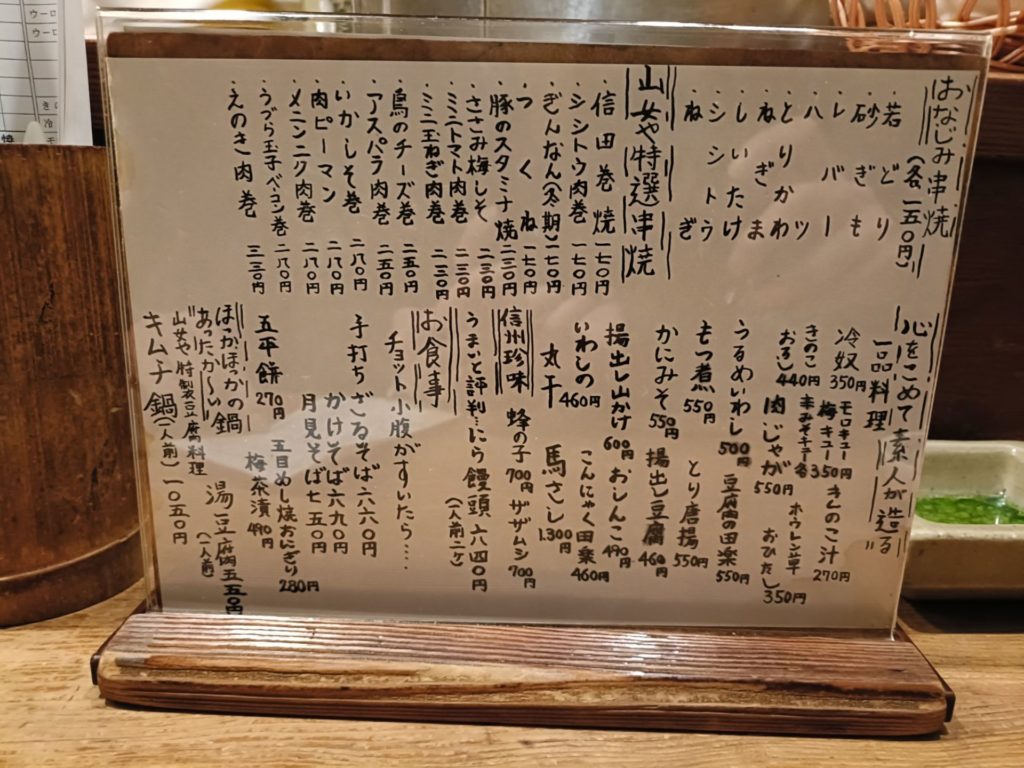 おなじみ串焼
(各一五〇円)
若どり
砂ぎも
レバー
ハツ
とりかわ
ねぎま
しいたけ
シシトウ
ねぎ
山女や特選串焼
・信田巻焼 一七〇円
・シシトウ肉巻 一七〇円
・ぎんなん(冬期) 一七〇円
・つくね 一七〇円
・豚のスタミナ焼 二三〇円
・ささみ梅しそ 二三〇円
・ミニトマト肉巻 二三〇円
・ミニ玉ねぎ肉巻 二三〇円
・鳥のチーズ巻 二五〇円
・アスパラ肉巻 二五〇円
・いかしそ巻 二八〇円
・肉ピーマン 二八〇円
・メニンニク肉巻 二八〇円
・うづら玉子ベーコン巻 二八〇円
・えのき肉巻 三三〇円
心をこめて素人が造る
一品料理
冷奴 350円
モロキュー
梅キュー
辛みそキュー 各350円
きのこ汁 270円
きのこおろし 440円
肉じゃが 550円
ホウレン草おひたし 350円
うるめいわし 500円
豆腐の田楽 550円
もつ煮 550円
とり唐揚 550円
かにみそ 550円
揚出し豆腐 460円
揚出し山かけ 600円
おしんこ 490円
いわしの丸干 460円
こんにゃく田楽 460円
馬さし 1.300円
信州珍味
蜂の子 700円
ザザムシ 700円
うまいと評判…にら饅頭 六四〇円
(一人前二ツ)
お食事
チョット小腹がすいたら….
手打ち
ざるそば 六六〇円
かけそば 六九〇円
月見そば 七五〇円
五平餅 270円
五目めし焼おにぎり 280円
梅茶漬 490円
ほかほっかの鍋
あったか〜い
山女や特製豆腐料理
湯豆腐 五五〇円
(一人前)
キムチ鍋(一人前) 一〇五〇円